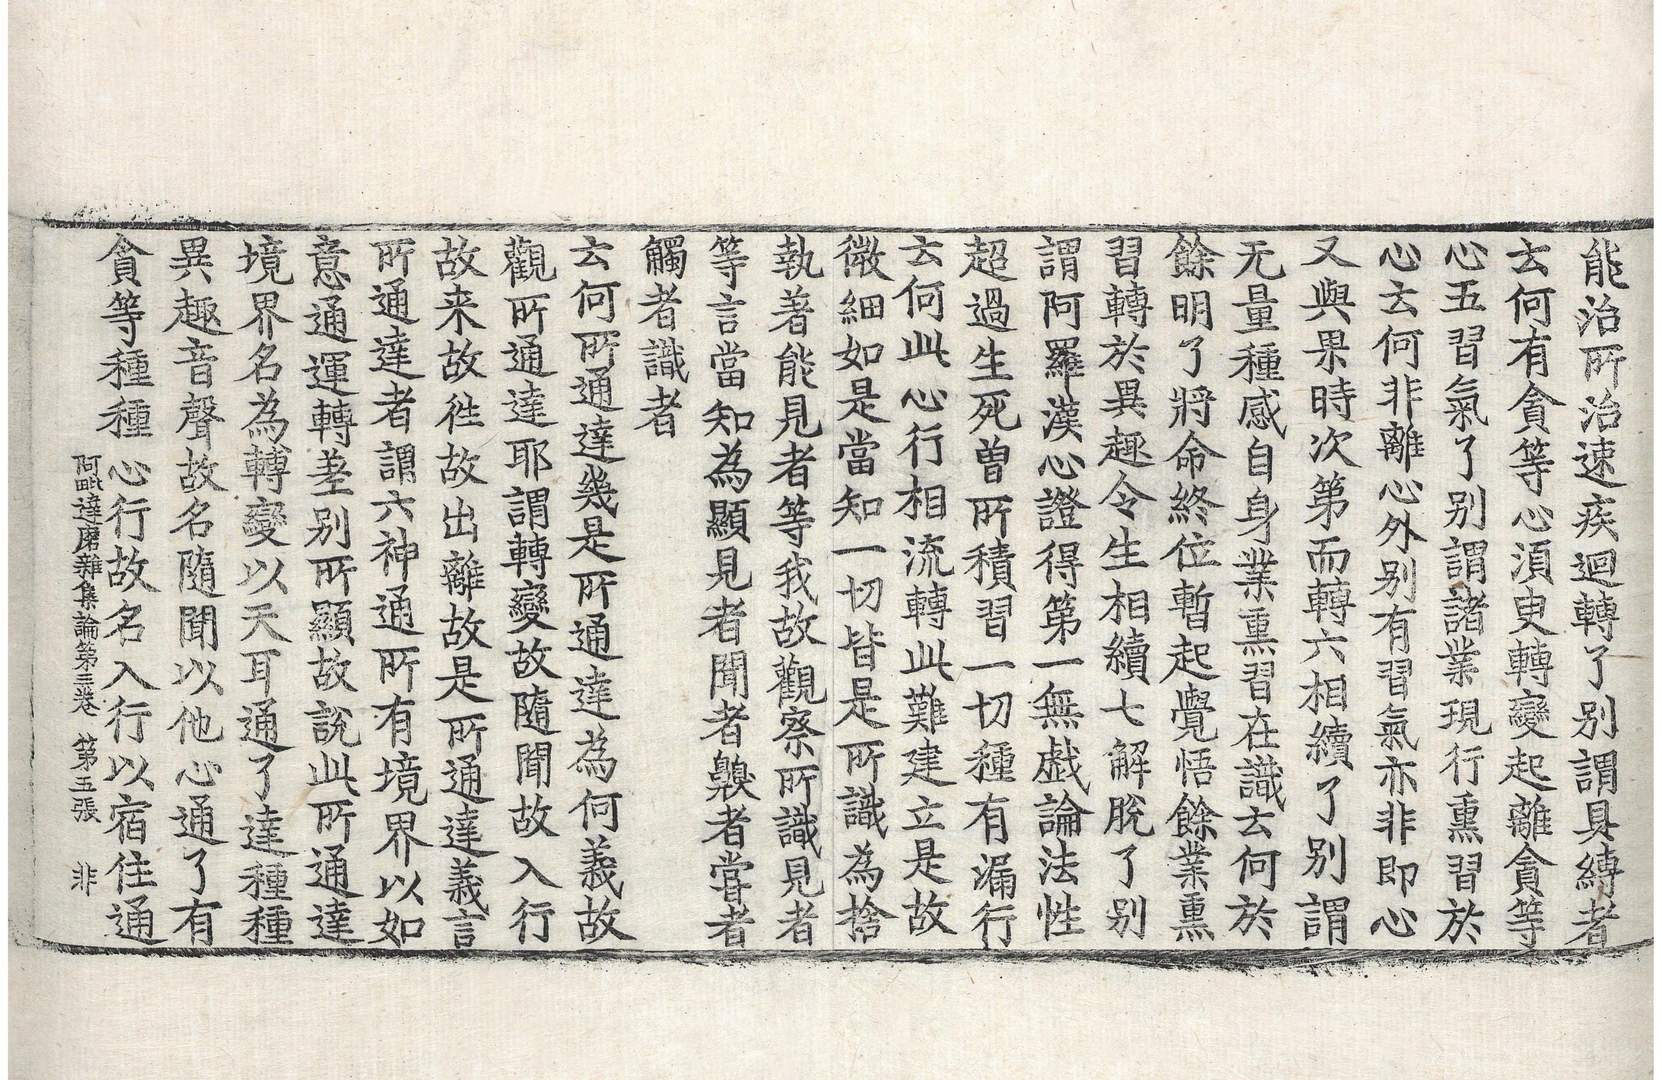 能治所治速疾迴轉了別謂具縛者
云何有貪等心須臾轉變起離貪等
心五習氣了別謂諸業現行熏習於
心云何非離心外別有習氣亦非即心
又與果時次第而轉六相續了別謂
无量種感自身業熏習在識云何於
餘明了將命終位暫起覺悟餘業熏
習轉於異趣令生相續七解脫了別
謂阿羅漢心證得第一無戲論法性
超過生死曾所積習一切種有漏行
云何此心行相流轉此難建立是故
微細如是當知一切皆是所識為捨
執著能見者等我故觀察所識見者
等言當知為顯見者聞者齅者甞者
觸者識者
云何所通達幾是所通達為何義故
觀所通達耶謂轉變故隨聞故入行
故来故徃故出離故是所通達義言
所通達者謂六神通所有境界以如
意通運轉差別所顯故說此所通達
境界名為轉變以天耳通了達種種
異趣音聲故名隨聞以他心通了有
貪等種種心行故名入行以宿住通
阿毗達磨雜集論第三卷 第五張 非